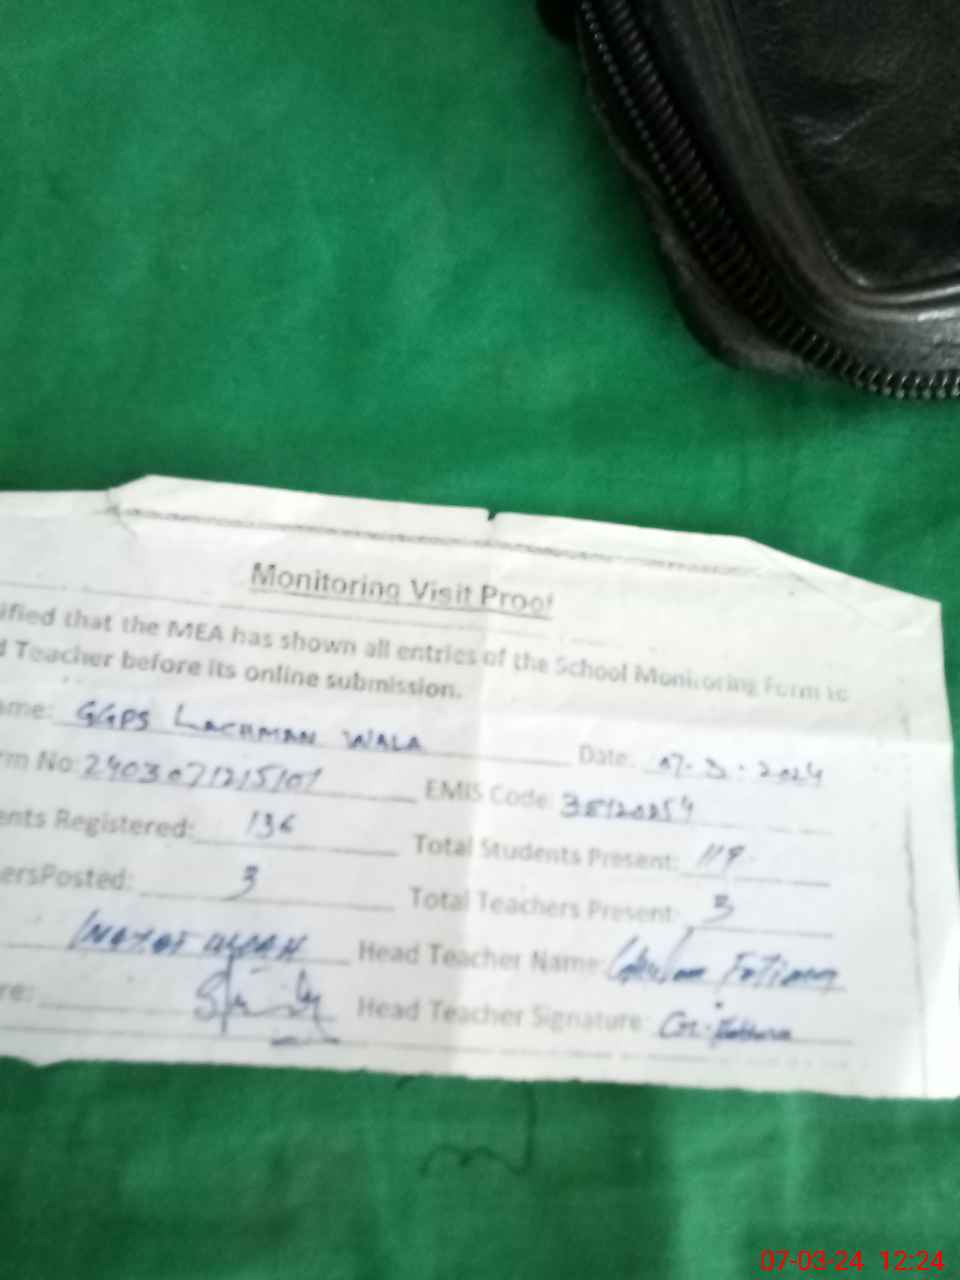 Monitoring Visit Proof
ified that the MEA has shown all entries of the School Monitoring Form to
d Teacher before its online submission.
ame: GGPS LACHMAN WALA Date: 07-3-2024
rm No: 2403071215101 EMIS Code:
ents Registered: 136 Total Students Present:
ersPosted: 3 Total Teachers Present: 3
Head Teacher Name: Fatima
re: Head Teacher Signature:
07-03-24 12:24